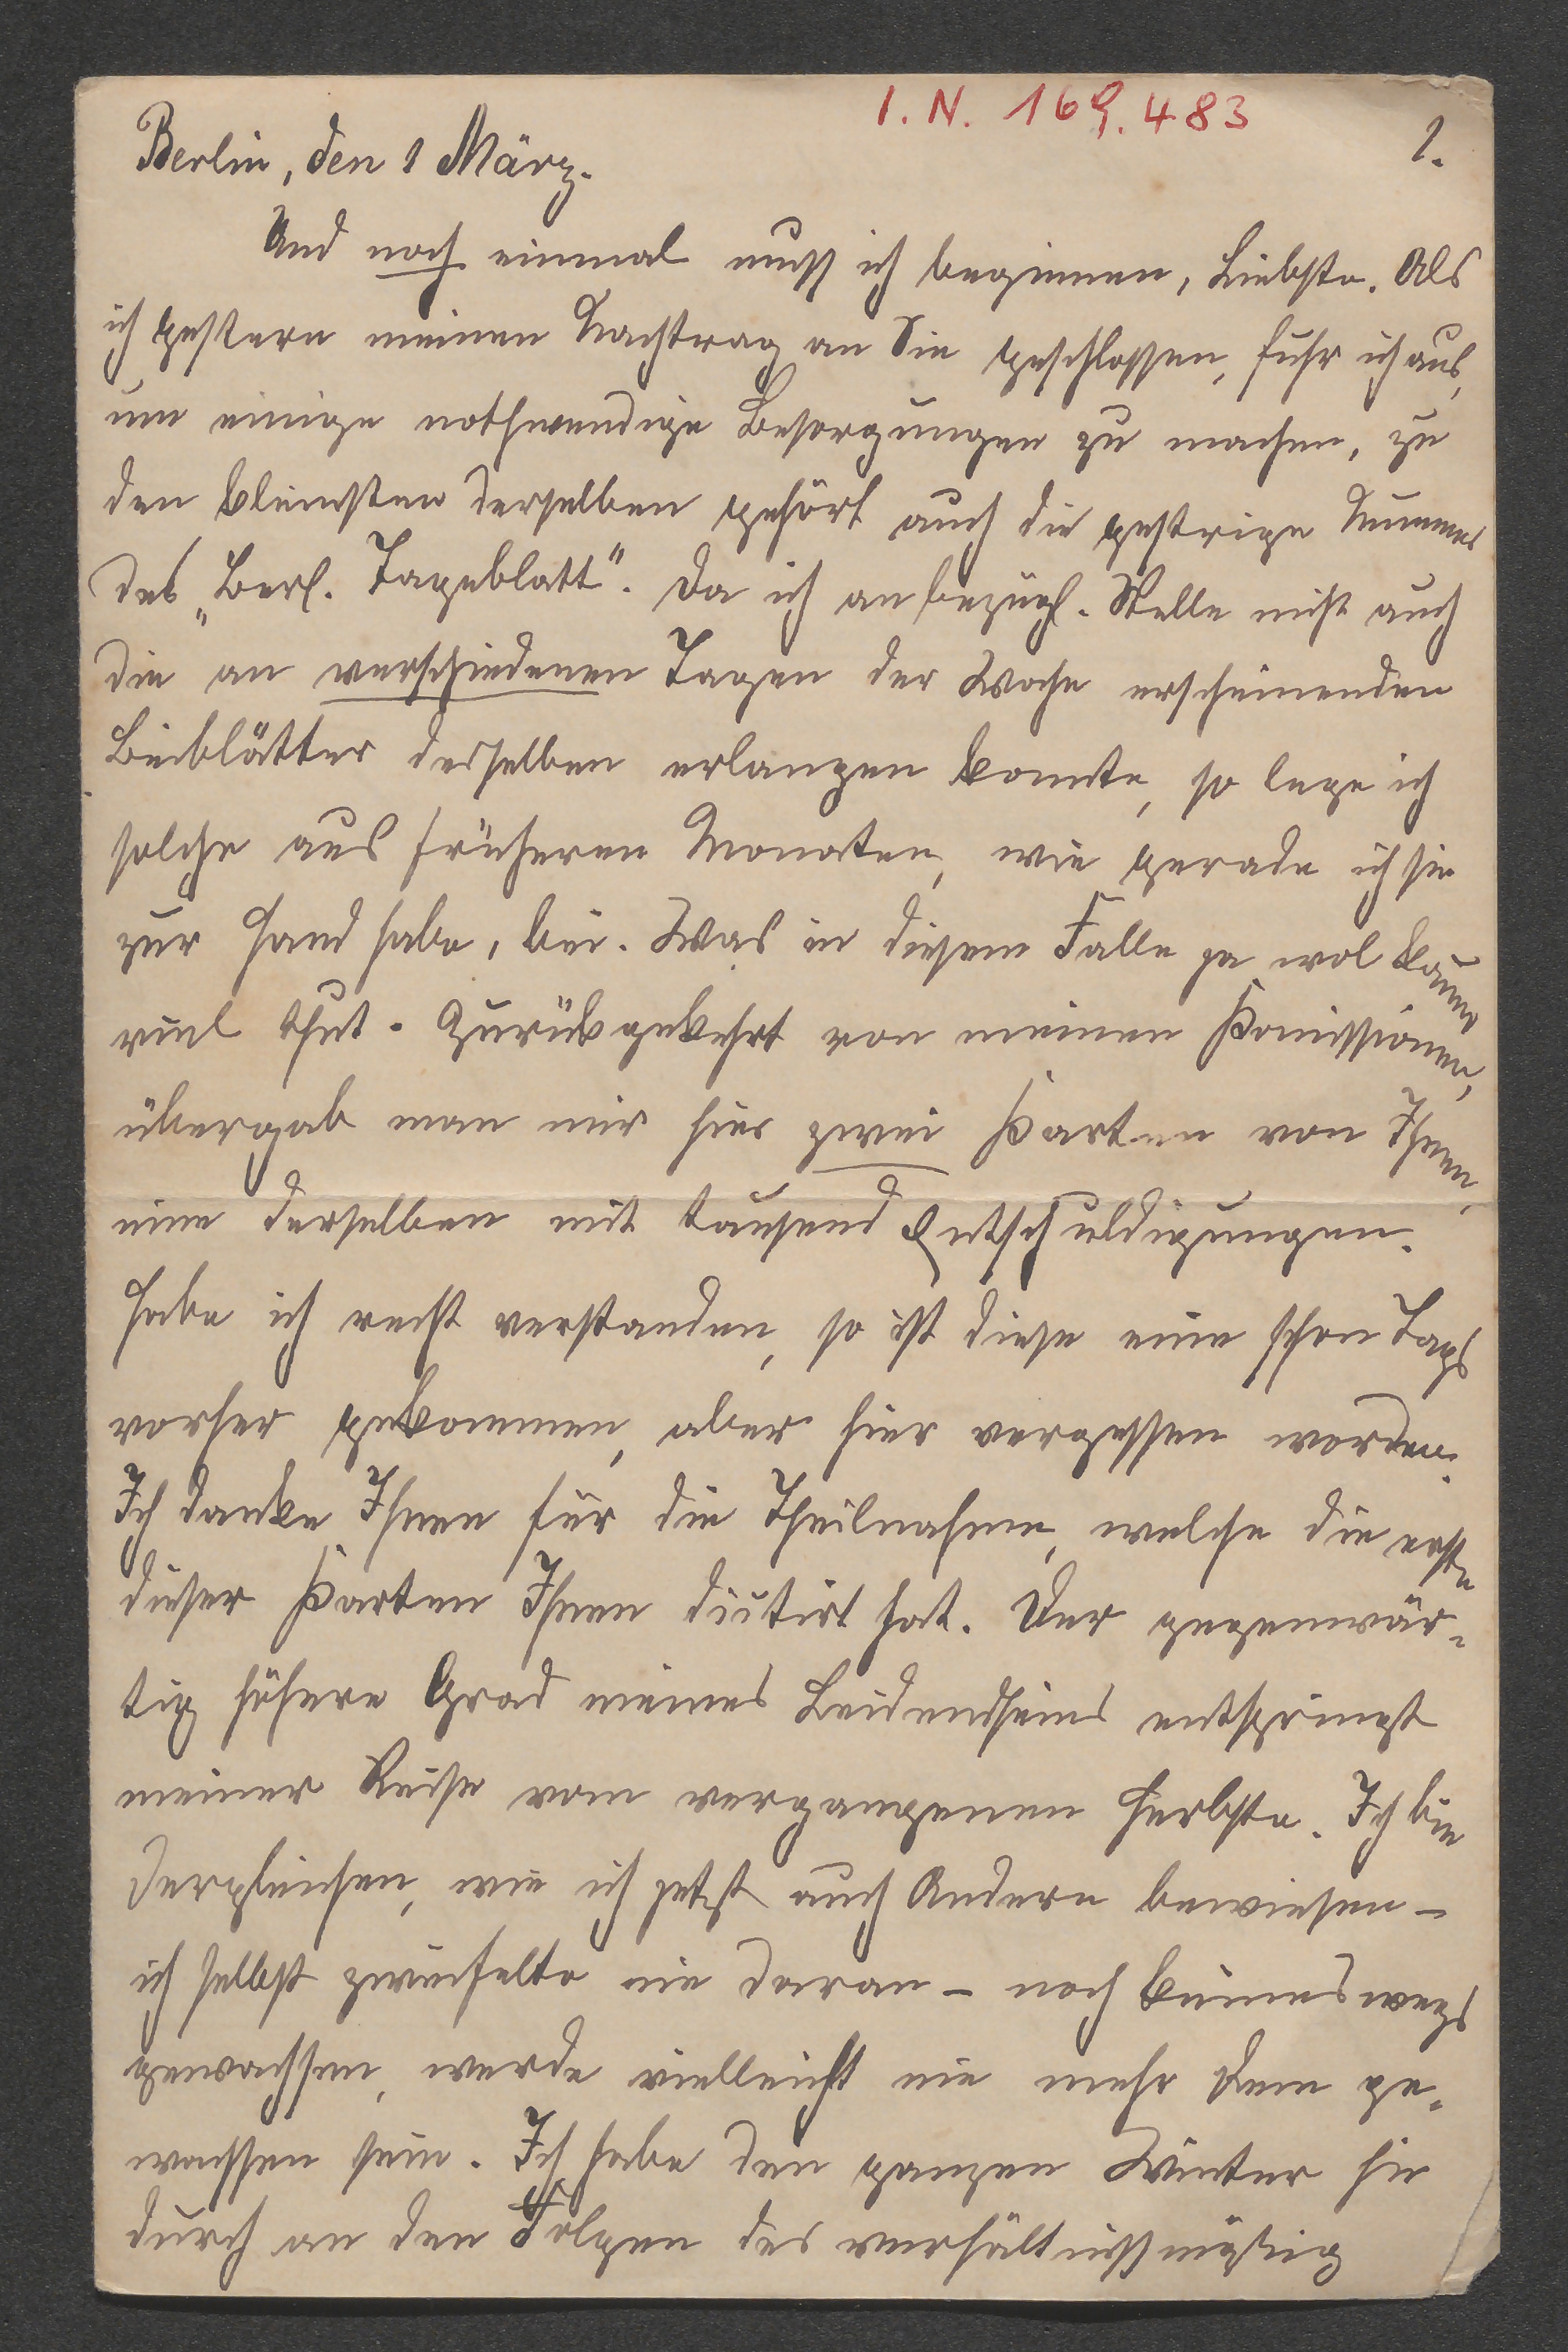 I. N. 169.483
1.
Berlin, den 1 März.
Und noch einmal muß ich beginnen, Liebste. Als
ich gestern meinen Nachtrag an Sie geschlossen, fuhr ich aus,
um einige nothwendige Besorgungen zu machen, zu
den kleinsten derselben gehört auch die gestrige Nummer
des „Berl. Tageblatt". Da ich an bezügl. Stelle nicht auch
die an verschiedenen Tagen der Woche erscheinenden
Beiblätter desselben erlangen konnte, so lege ich
solche aus früheren Monaten, wie gerade ich sie
zur Hand habe, bei. Was in diesem Falle ja wol kaum
viel thut. Zurückgekehrt von meinen Komissionen,
übergab man mir hier zwei Karten von Ihnen,
eine derselben mit tausend Entschuldigungen.
Habe ich recht verstanden, so ist diese eine schon Tags
vorher gekommen, aber hier vergessen worden.
Ich danke Ihnen für die Theilnahme, welche die erste
dieser Karten Ihnen dictirt hat. Der gegenwär-
tig höhere Grad meines Leidendseins entspringt
meiner Reise vom vergangenen Herbste. Ich bin
Dergleichen, wie ich jetzt auch Andern bewiesen –
ich selbst zweifelte nie daran – noch keineswegs
gewachsen, werde vielleicht nie mehr dem ge-
wachsen sein. Ich habe den ganzen Winter hin
durch an den Folgen des verhältnissmäßig